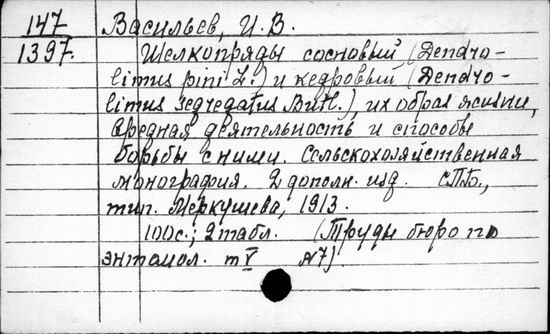 147 Васильев, И. В.
1397. Шелкопряды сосновый (Dendro-
limus pini L.) и кедровый (Dendro-
limus segregatus Butl.), их образ жизни,
вредная деятельность и способы
борьбы с ними. Сельскохозяйственная
монография. 2 дополн. изд. СПБ.,
тип. Меркушева, 1913.
100с.; 2 табл. (Труды бюро по
энтомол. т V №7).